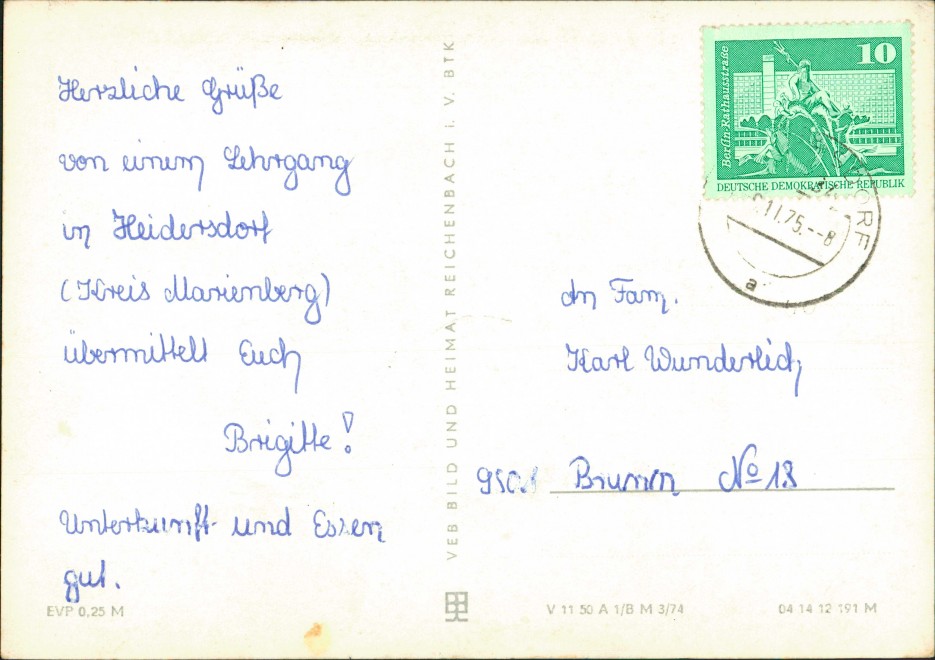 Herzliche Grüße
von einem Lehrgang
in Heidersdorf
(Kreis Marienberg)
übermittelt Euch
Brigitte!
Unterkunft und Essen
gut.
EVP 0,25 M
VEB BILD UND HEIMAT REICHENBACH i. V. BTK
Berlin-Rathausstraße
10
DEUTSCHE DEMOKRATISCHE REPUBLIK
11.75.--8
a
An Fam.
Karl Wunderlich
Brunn No 18
V 11 50 A 1/B M 3/74
04 14 12 191 M